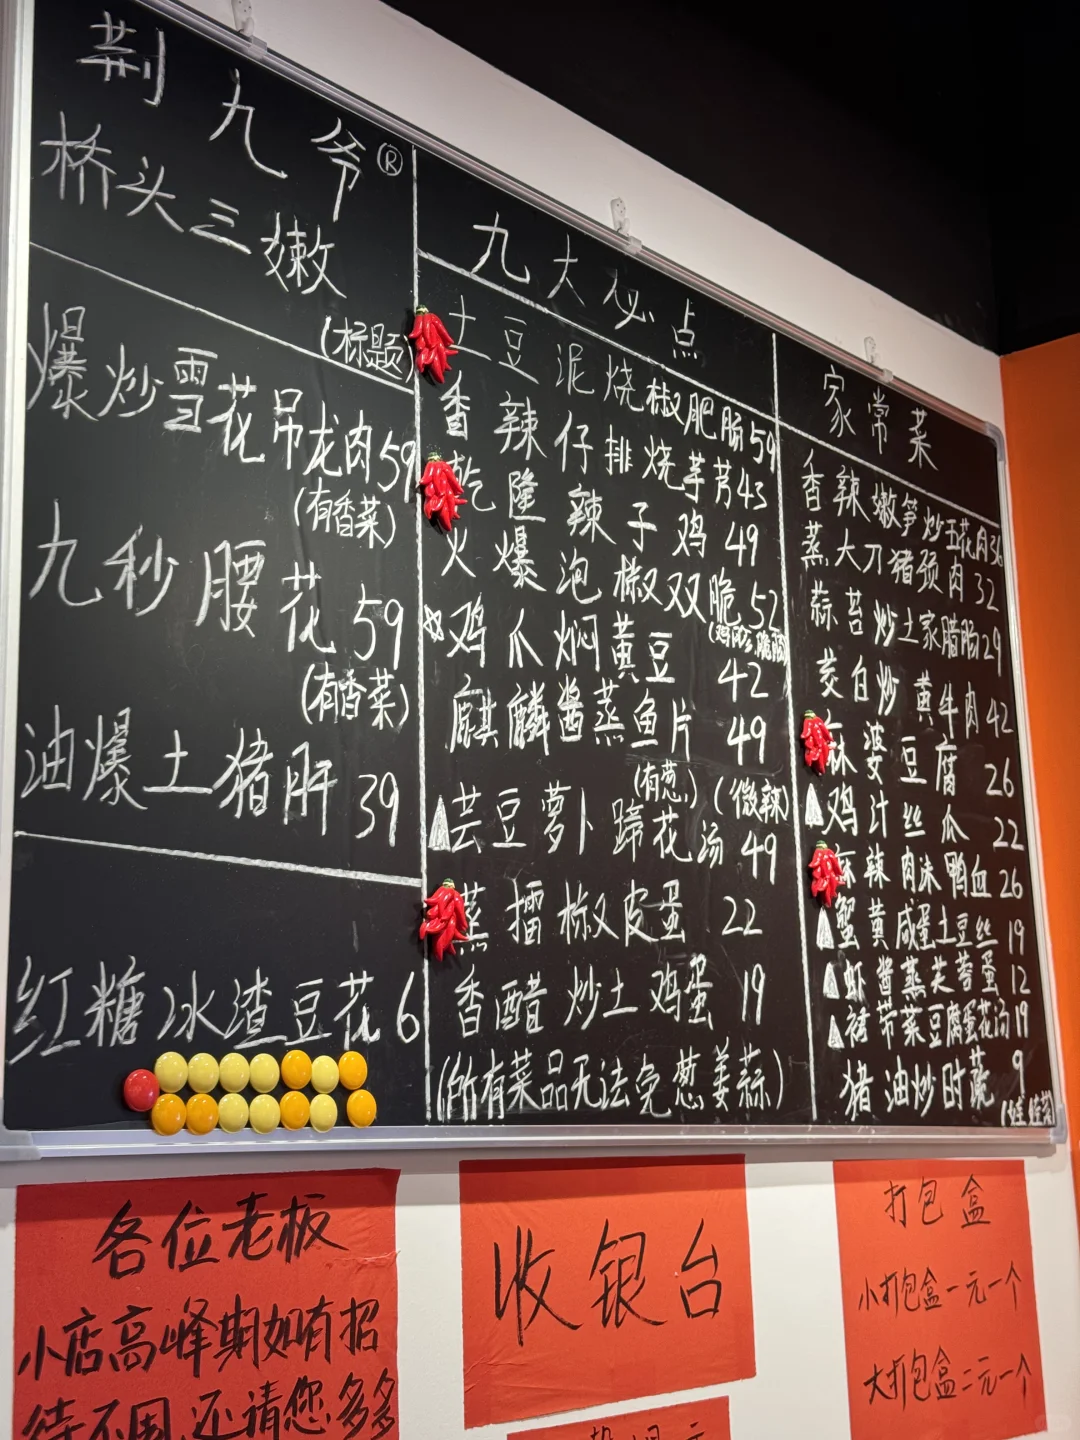 荆九爷®
桥头三嫩
(标题)
爆炒雪花吊龙肉59
(有香菜)
九秒腰花59
(有香菜)
油爆土猪肝39
红糖冰渣豆花6
九大必点
土豆泥烧椒肥肠59
香辣仔排烧芋艿43
乾隆辣子鸡49
火爆泡椒双脆52
(鸡胗,脆肠)
鸡爪焖黄豆42
麒麟酱蒸鱼片49
(有葱)(微辣)
芸豆萝卜蹄花汤49
蒸擂椒皮蛋22
香醋炒土鸡蛋19
(所有菜品无法免葱姜蒜)
家常菜
香辣嫩笋炒五花肉36
蒸大刀猪颈肉32
蒜苔炒土家腊肠29
茭白炒黄牛肉42
麻婆豆腐26
鸡汁丝瓜22
麻辣肉沫鸭血26
蟹黄咸蛋土豆丝19
虾酱蒸芙蓉蛋12
裙带菜豆腐蛋花汤19
猪油炒时蔬9
(娃娃菜)
各位老板
小店高峰期如有招
待不周,还请您多多
收银台
打包盒
小打包盒一元一个
大打包盒二元一个